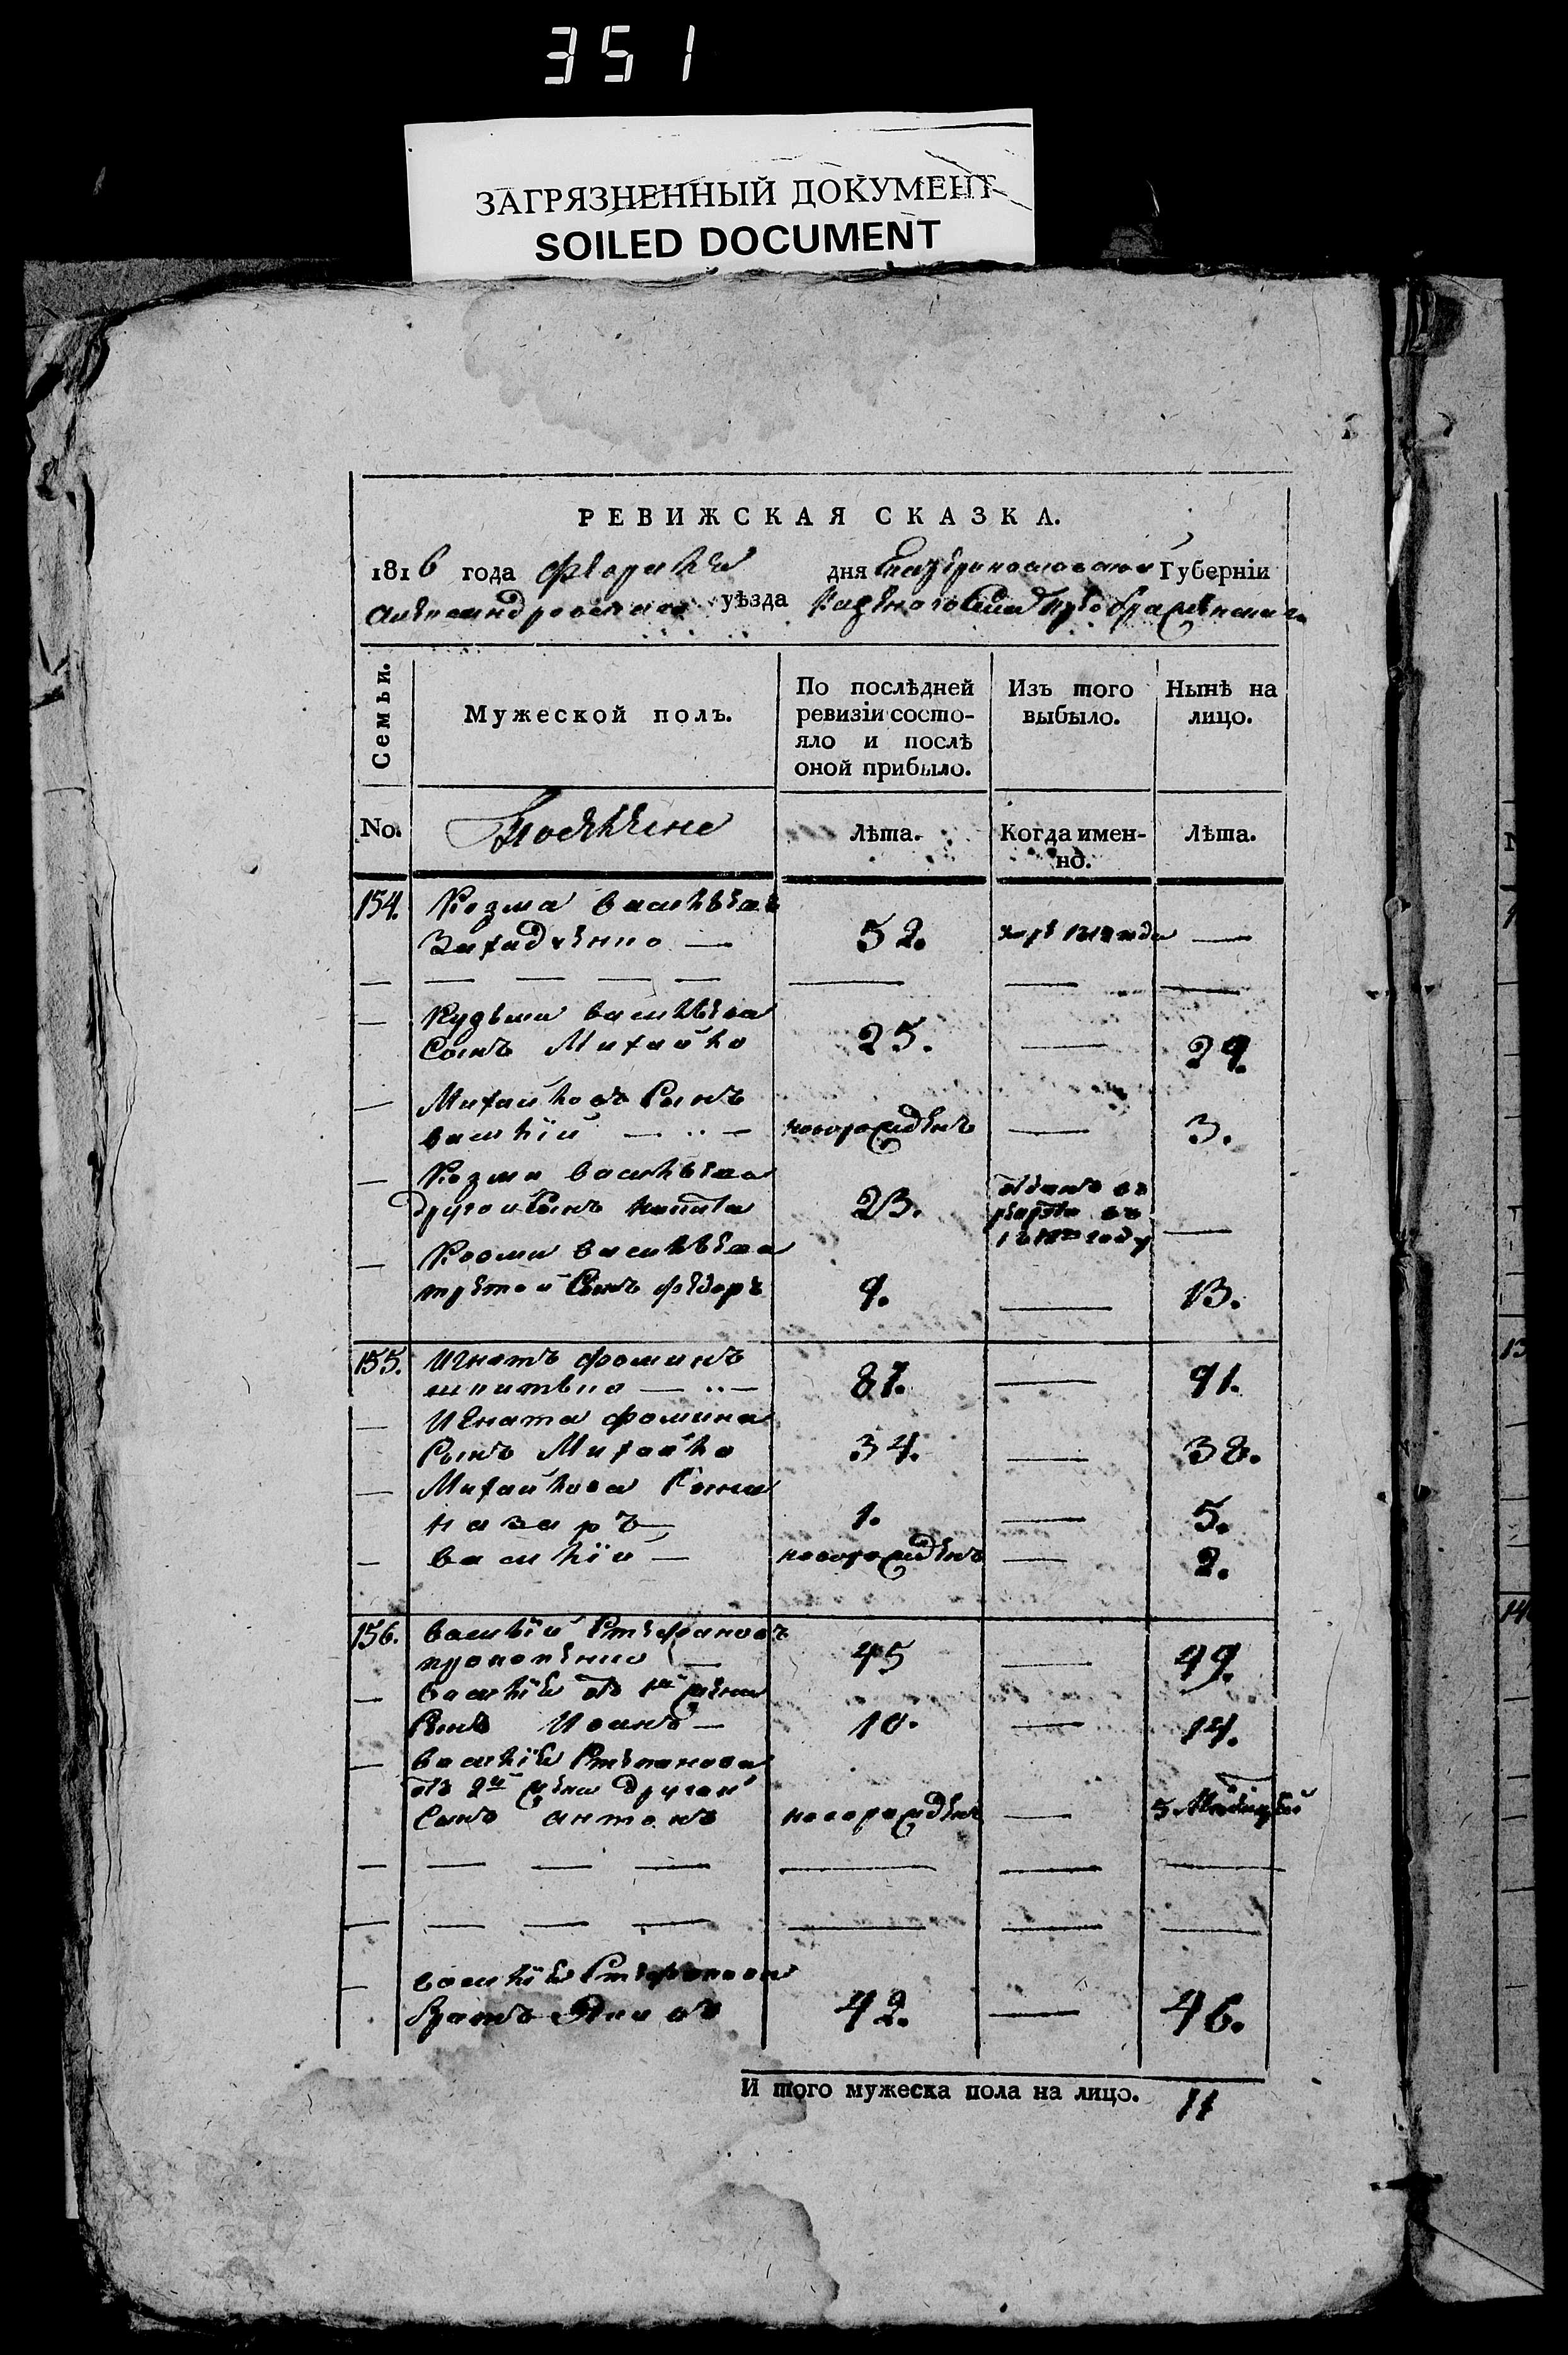 351
ЗАГРЯЗНЕННЫЙ ДОКУМЕНТ
SOILED DOCUMENT
РЕВИЖСКАЯ СКАЗКА.
1816 года февраля дня Екатеринославской Губерніи
Александровскаго уѣзда Казенного села Преображенскаго
Семьи.
Мужеской полъ.
По послѣдней ревизіи состояло и послѣ оной прибыло.
Изъ того выбыло.
Нынѣ на лицо.
No.
Лѣта.
Когда именно.
Лѣта.
154. Козма васильевъ
52. —
— — — —
Кузьма васильева
сынъ Михайло 25. — 29.
Михайловъ сынъ
василій — новорожденъ — 3.
Козма васильева
другой сынъ 23. отданъ въ рекруты въ году —
Козма васильева
третей сынъ федоръ 9. — 13.
155. Игнатъ фоминъ
87. — 91.
Игната фомина
сынъ Михайло 34. — 38.
Михайлова сыны
назаръ 1. — 5.
василій — новорожденъ — 2.
156. василій Стефановъ
45 — 49.
василія отъ 1й жены
сынъ Иванъ — 10. — 14.
василія Степанова
отъ 2й жены другой
сынъ антонъ новорожденъ — 5
— — — —
— — — —
василія Стефанова
42. — 46.
И того мужеска пола на лицо. 11